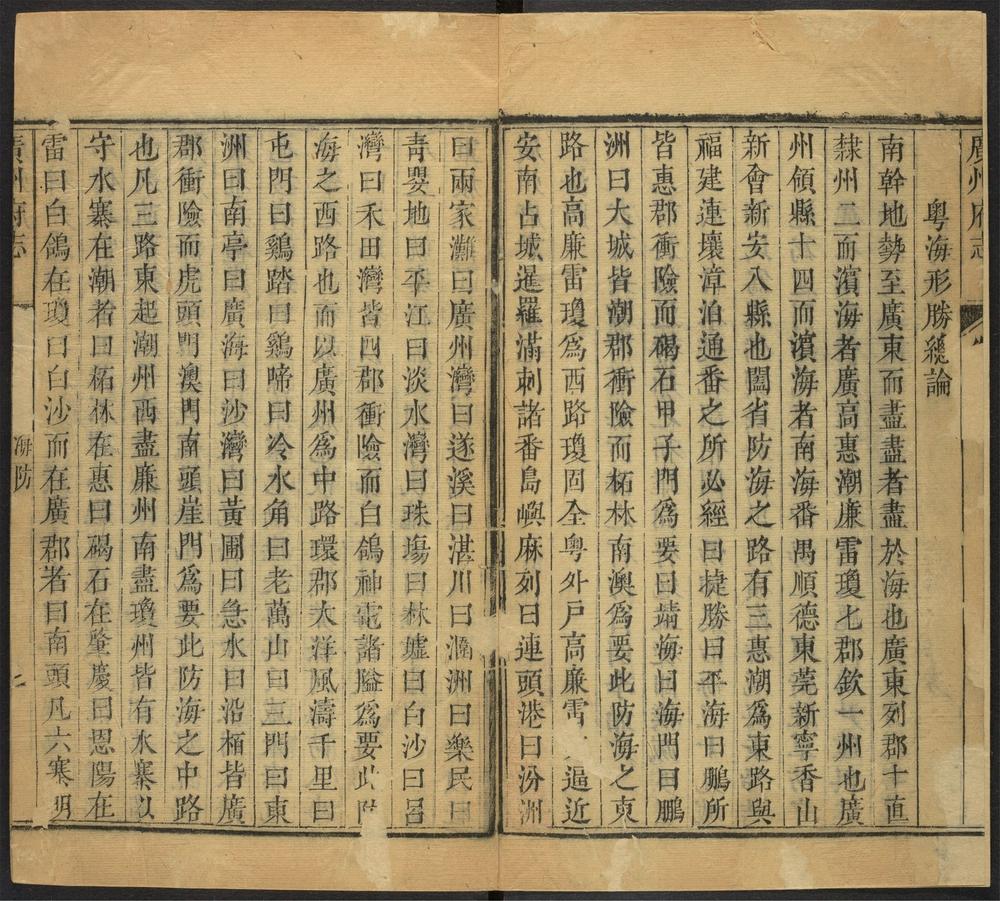 廣州府志
粵海形勝總論
南幹地勢至廣東而盡盡者盡於海也廣東列郡十直
隸州二而濱海者廣高惠潮廉雷瓊七郡欽一州也廣
州領縣十四而濱海者南海番禺順德東莞新寧香山
新會新安八縣也闔省防海之路有三惠潮為東路與
福建連壤漳泊通番之所必經曰捷勝曰平海曰鵬所
皆惠郡衝險而碣石甲子門為要曰靖海曰海門曰鵬
洲曰大城皆潮郡衝險而柘林南澳為要此防海之東
路也高廉雷瓊為西路瓊固全粵外戶高廉雷逼近
安南占城暹羅滿剌諸番島嶼麻列曰連頭港曰汾洲
曰兩家灘曰廣州灣曰遂溪曰湛川曰潿洲曰樂民曰
青嬰地曰平江曰淡水灣曰珠塲曰林墟曰白沙曰呂
灣曰禾田灣皆四郡衝險而白鴿神電諸隘為要此防
海之西路也而以廣州為中路環郡大洋風濤千里曰
屯門曰鷄踏曰鷄啼曰冷水角曰老萬山曰三門曰東
洲曰南亭曰廣海曰沙灣曰黃圃曰急水曰沿栢皆廣
郡衝險而虎頭門澳門南頭崖門為要此防海之中路
也凡三路東起潮州西盡廉州南盡瓊州皆有水寨以
守水寨在潮者曰柘林在惠曰碣石在肇慶曰恩陽在
雷曰白鴿在瓊曰白沙而在廣郡者曰南頭凡六寨明
廣州府志
海防
七